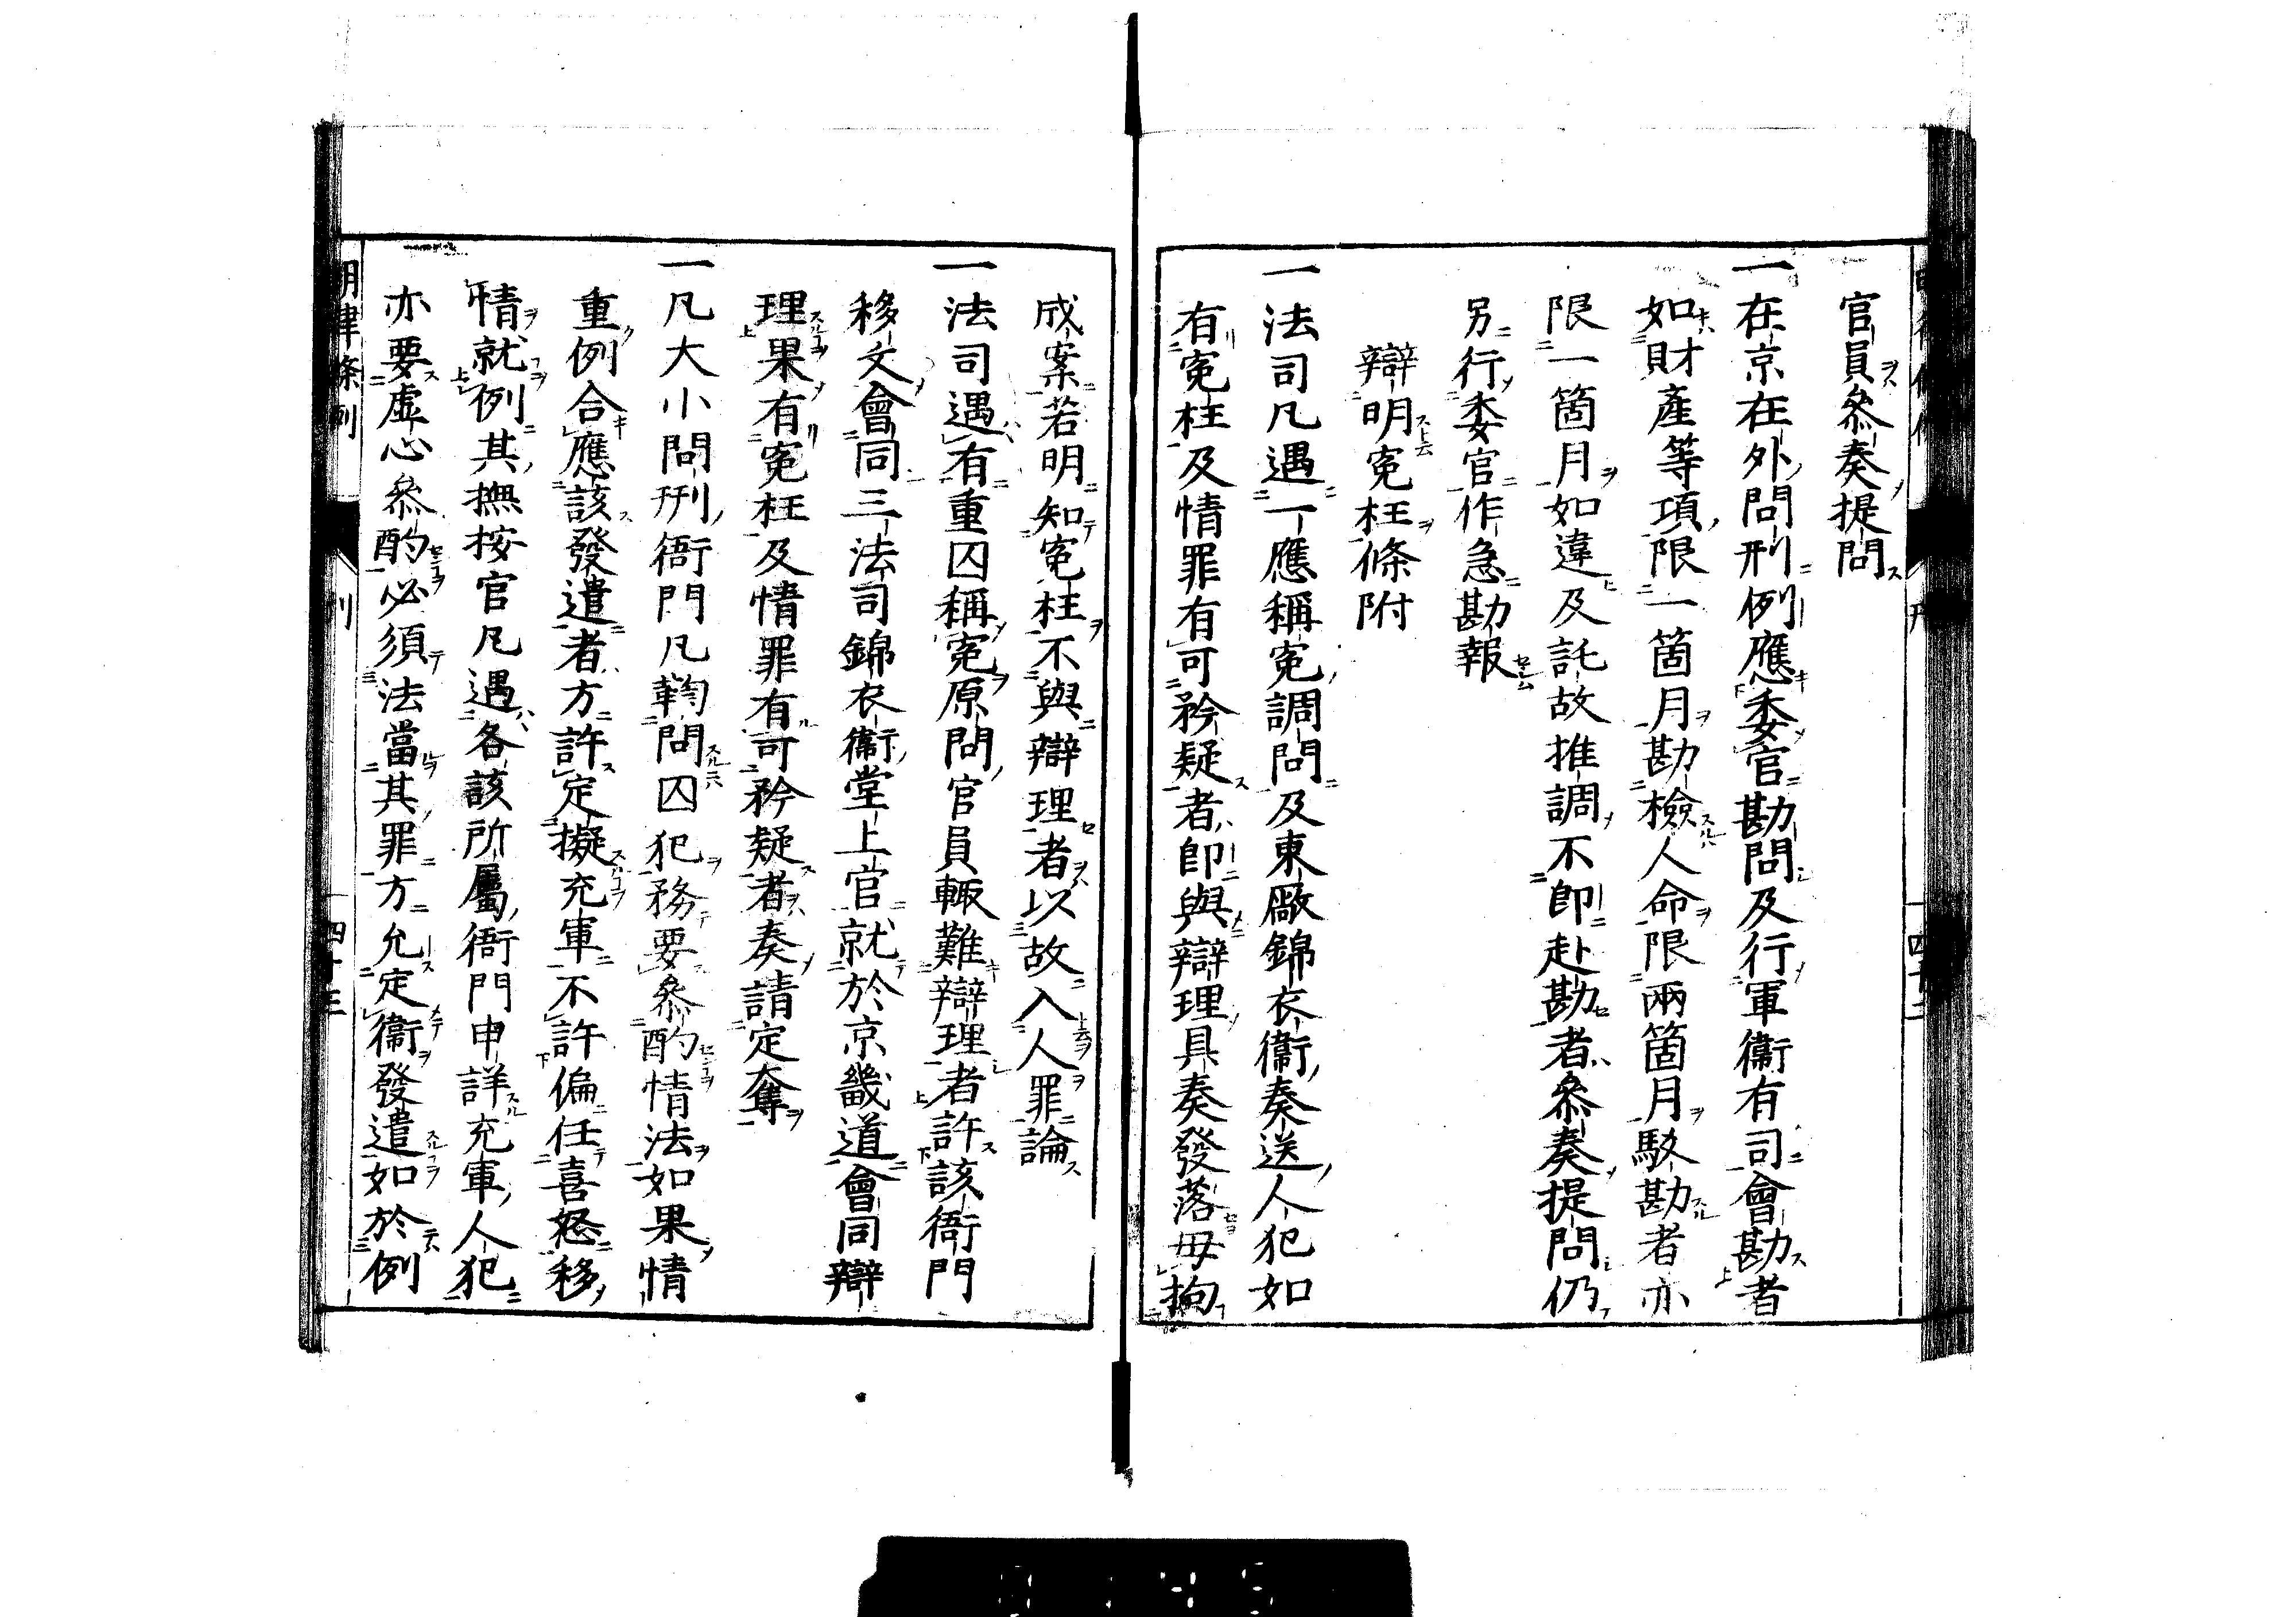 官員叅奏提問
一在京在外問刑例應委官勘問及行軍衞有司會勘者
如財產等項限一箇月勘檢人命限兩箇月駁勘者亦
限一箇月如違及託故推調不即赴勘者叅奏提問仍
另行委官作急勘報
辯明寃枉條附
一法司凡遇一應稱寃調問及東廠錦衣衞奏送人犯如
有寃枉及情罪有可矜疑者即與辯理具奏發落毋拘
成案若明知寃枉不與辯理者以故入人罪論
一法司遇有重囚稱寃原問官員輙難辯理者許該衙門
移文會同三法司錦衣衞堂上官就於京畿道會同辯
理果有寃枉及情罪有可矜疑者奏請定奪
一凡大小問刑衙門凡鞫問囚犯務要叅酌情法如果情
重例合應該發遣者方許定擬充軍不許偏任喜怒移
情就例其撫按官凡遇各該所屬衙門申詳充軍人犯
亦要虛心叅酌必須法當其罪方允定衞發遣如於例
明律條例
四十三